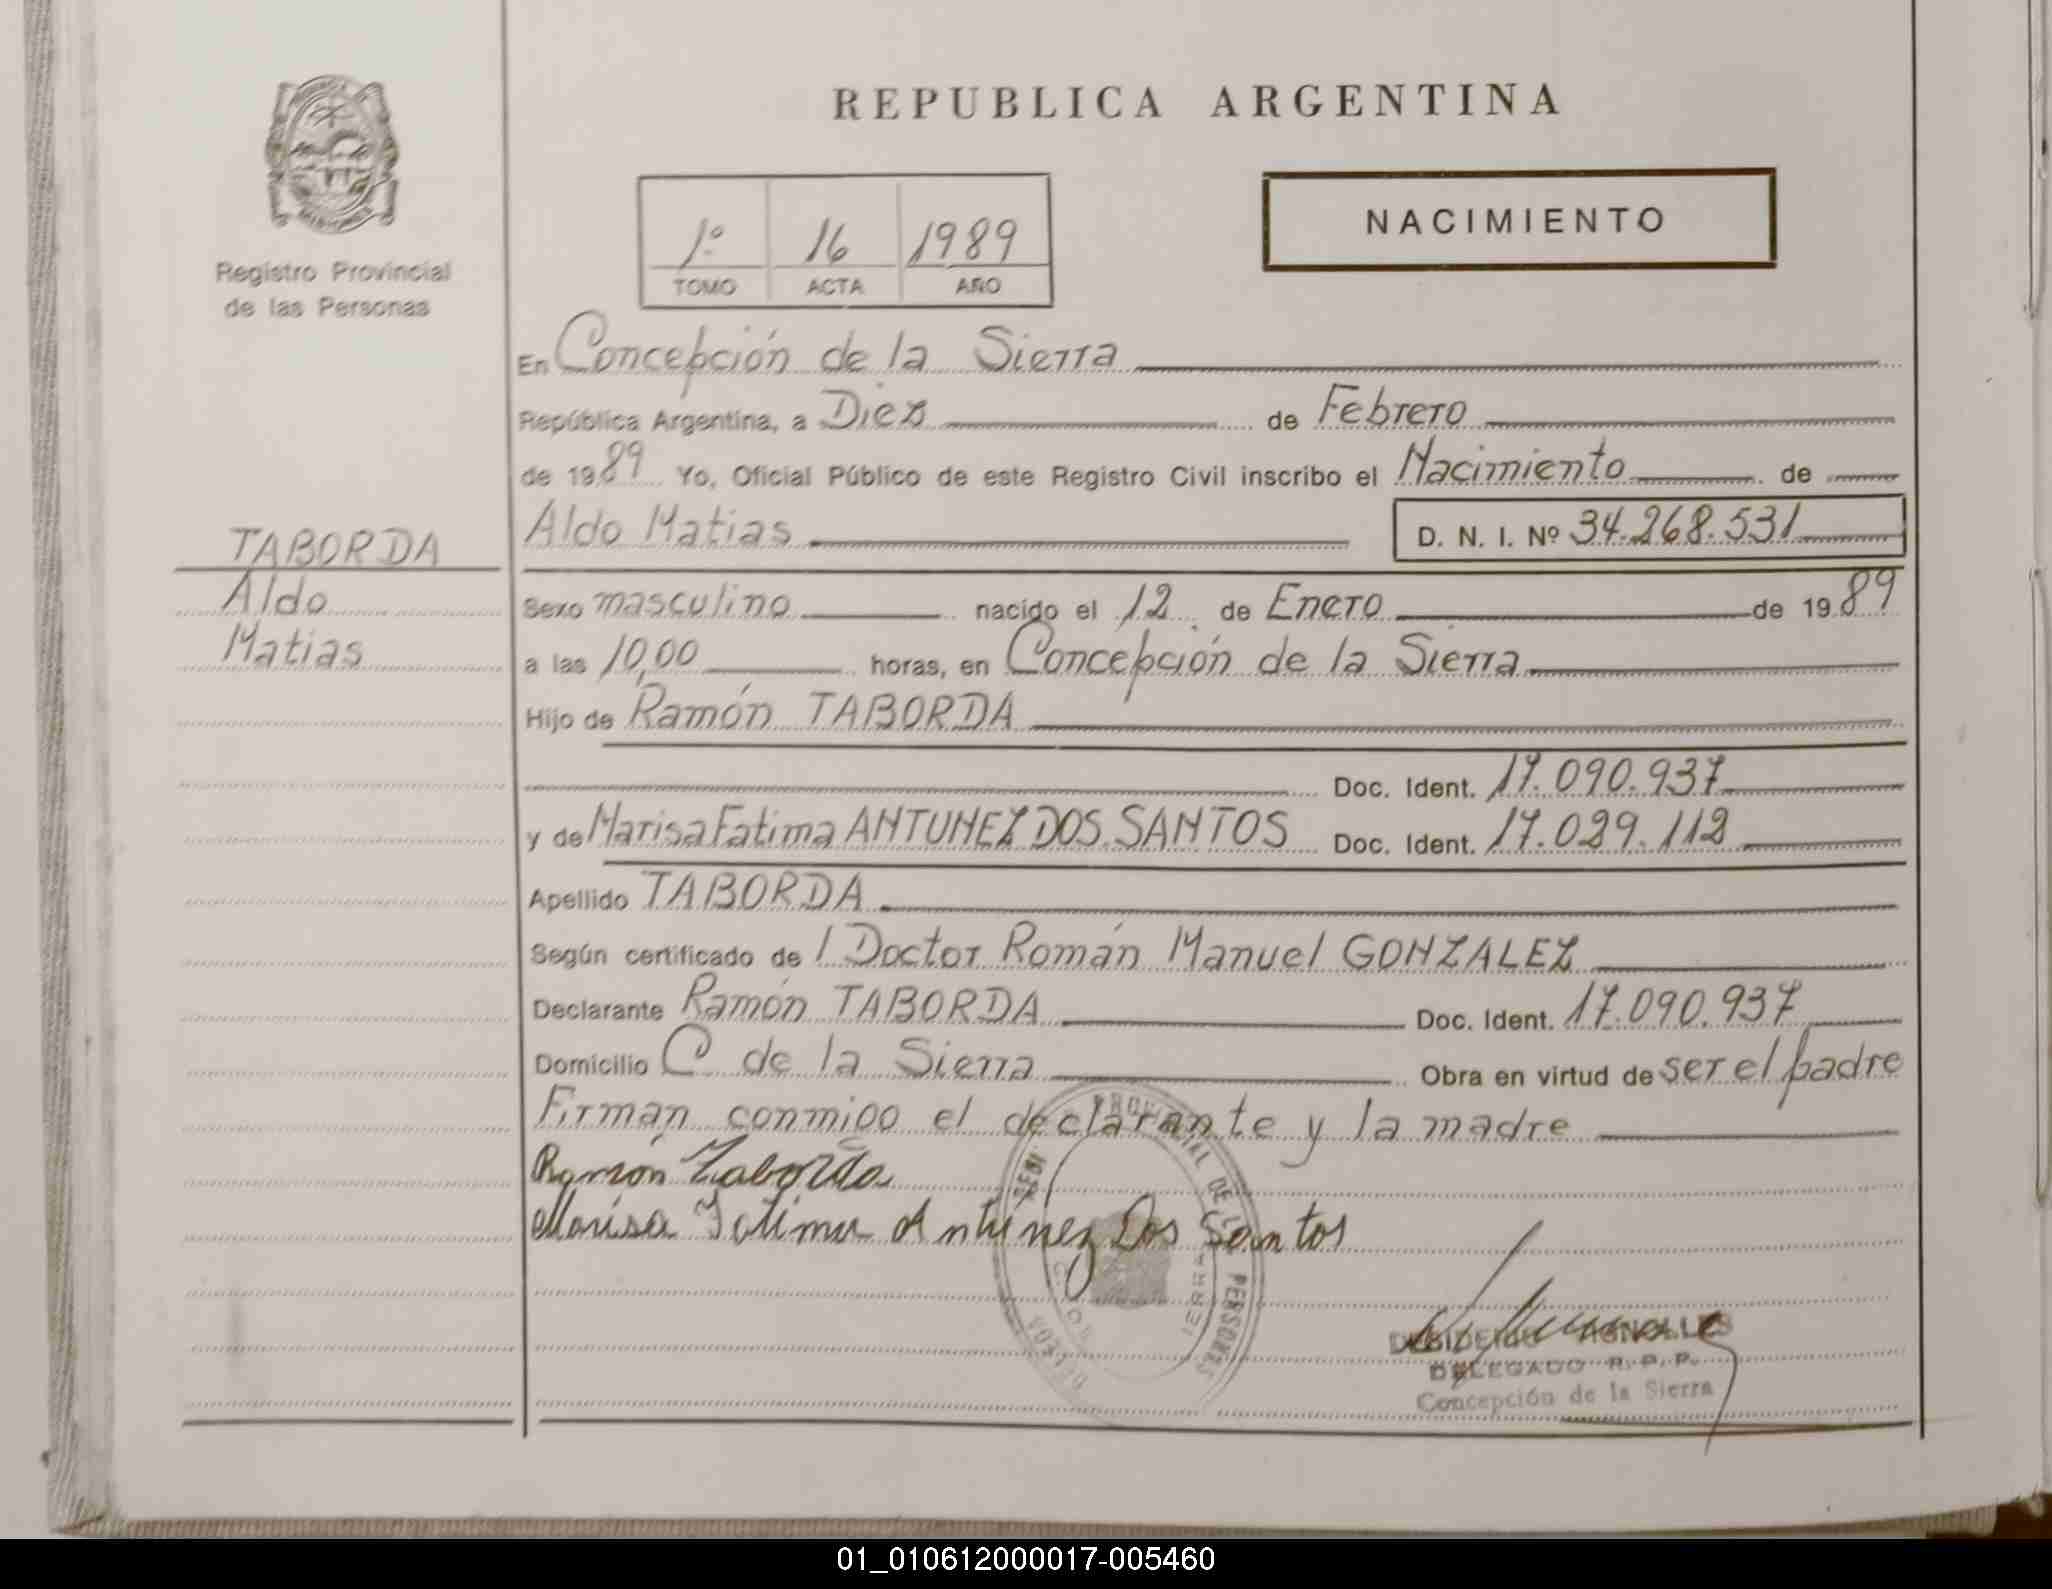 REPUBLICA ARGENTINA
NACIMIENTO
1º 16 1989
TOMO ACTA AÑO
Registro Provincial
de las Personas
En Concepción de la Sierra
República Argentina, a Diez de Febrero
de 1989 Yo, Oficial Público de este Registro Civil inscribo el Nacimiento de
Aldo Matias D. N. I. Nº 34.268.531
TABORDA
Aldo
Matias
Sexo masculino nacido el 12 de Enero de 1989
a las 10,00 horas, en Concepción de la Sierra
Hijo de Ramón TABORDA
Doc. Ident. 17.090.937
y de Marisa Fatima ANTUNEZ DOS SANTOS Doc. Ident. 17.029.112
Apellido TABORDA
Según certificado de l Doctor Román Manuel GONZALEZ
Declarante Ramón TABORDA Doc. Ident. 17.090.937
Domicilio C. de la Sierra Obra en virtud de ser el padre
Firman conmigo el declarante y la madre
Ramón Taborda
Marisa Fatima Antunez Dos Santos
PROVINCIAL DE PERSONAS
DELEGADO R. P. P.
Concepción de la Sierra
01_010612000017-005460